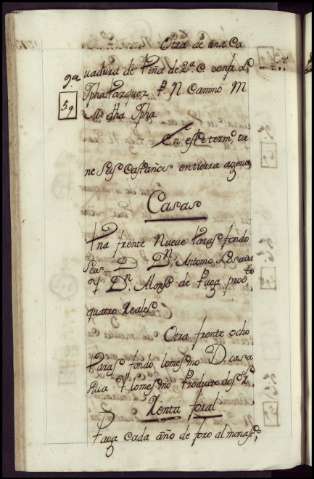 Otra de una Ca
vadura de Viña de 2ª C confª Lᵉ
Jpha Vazquez P. N Camino M
M dha Jpha
En este termº tie
ne seis Castaños en tierra agena
Casas
Una frente Nueve Varas fondo
Seis D Dⁿ Antonio
y Dⁿ de Paga prodᵗᵒ
quatro Reales
Otra frente ocho
Varas fondo lo mesmo D. casa
lo mesmo Producto dos rˢ
Renta foral
Paga cada año de foro al monastº